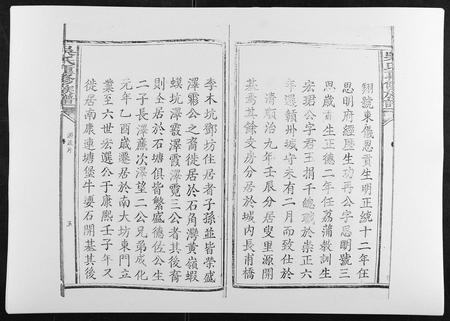 翔號東儀恩貢生明正統十二年任
思明府經歷生功丹公字思明號三
典歲貢生正德二年任荔蒲教訓生
宏珺公字君王捐千總職於崇正六
年選贛州城守未有二月而致仕於
清順治九年壬辰分居叟里源開
基焉其餘支房分居於城内長甫橋
李木坑鄧坊住居者子孫並皆榮盛
澤霜公之裔徙居於石角灣黄嶺蝦
蟆坑澤叢澤霞澤霓三公者其後裔
則全居於石塘俱皆繁盛德佐公生
二子長澤薦次澤望二公兄弟成化
元年乙酉歲遷居於南大坊東門立
業至六世宏選公于康熙壬子年又
徙居南康連塘堡牛婁石開基其後
吳氏重修族譜
五